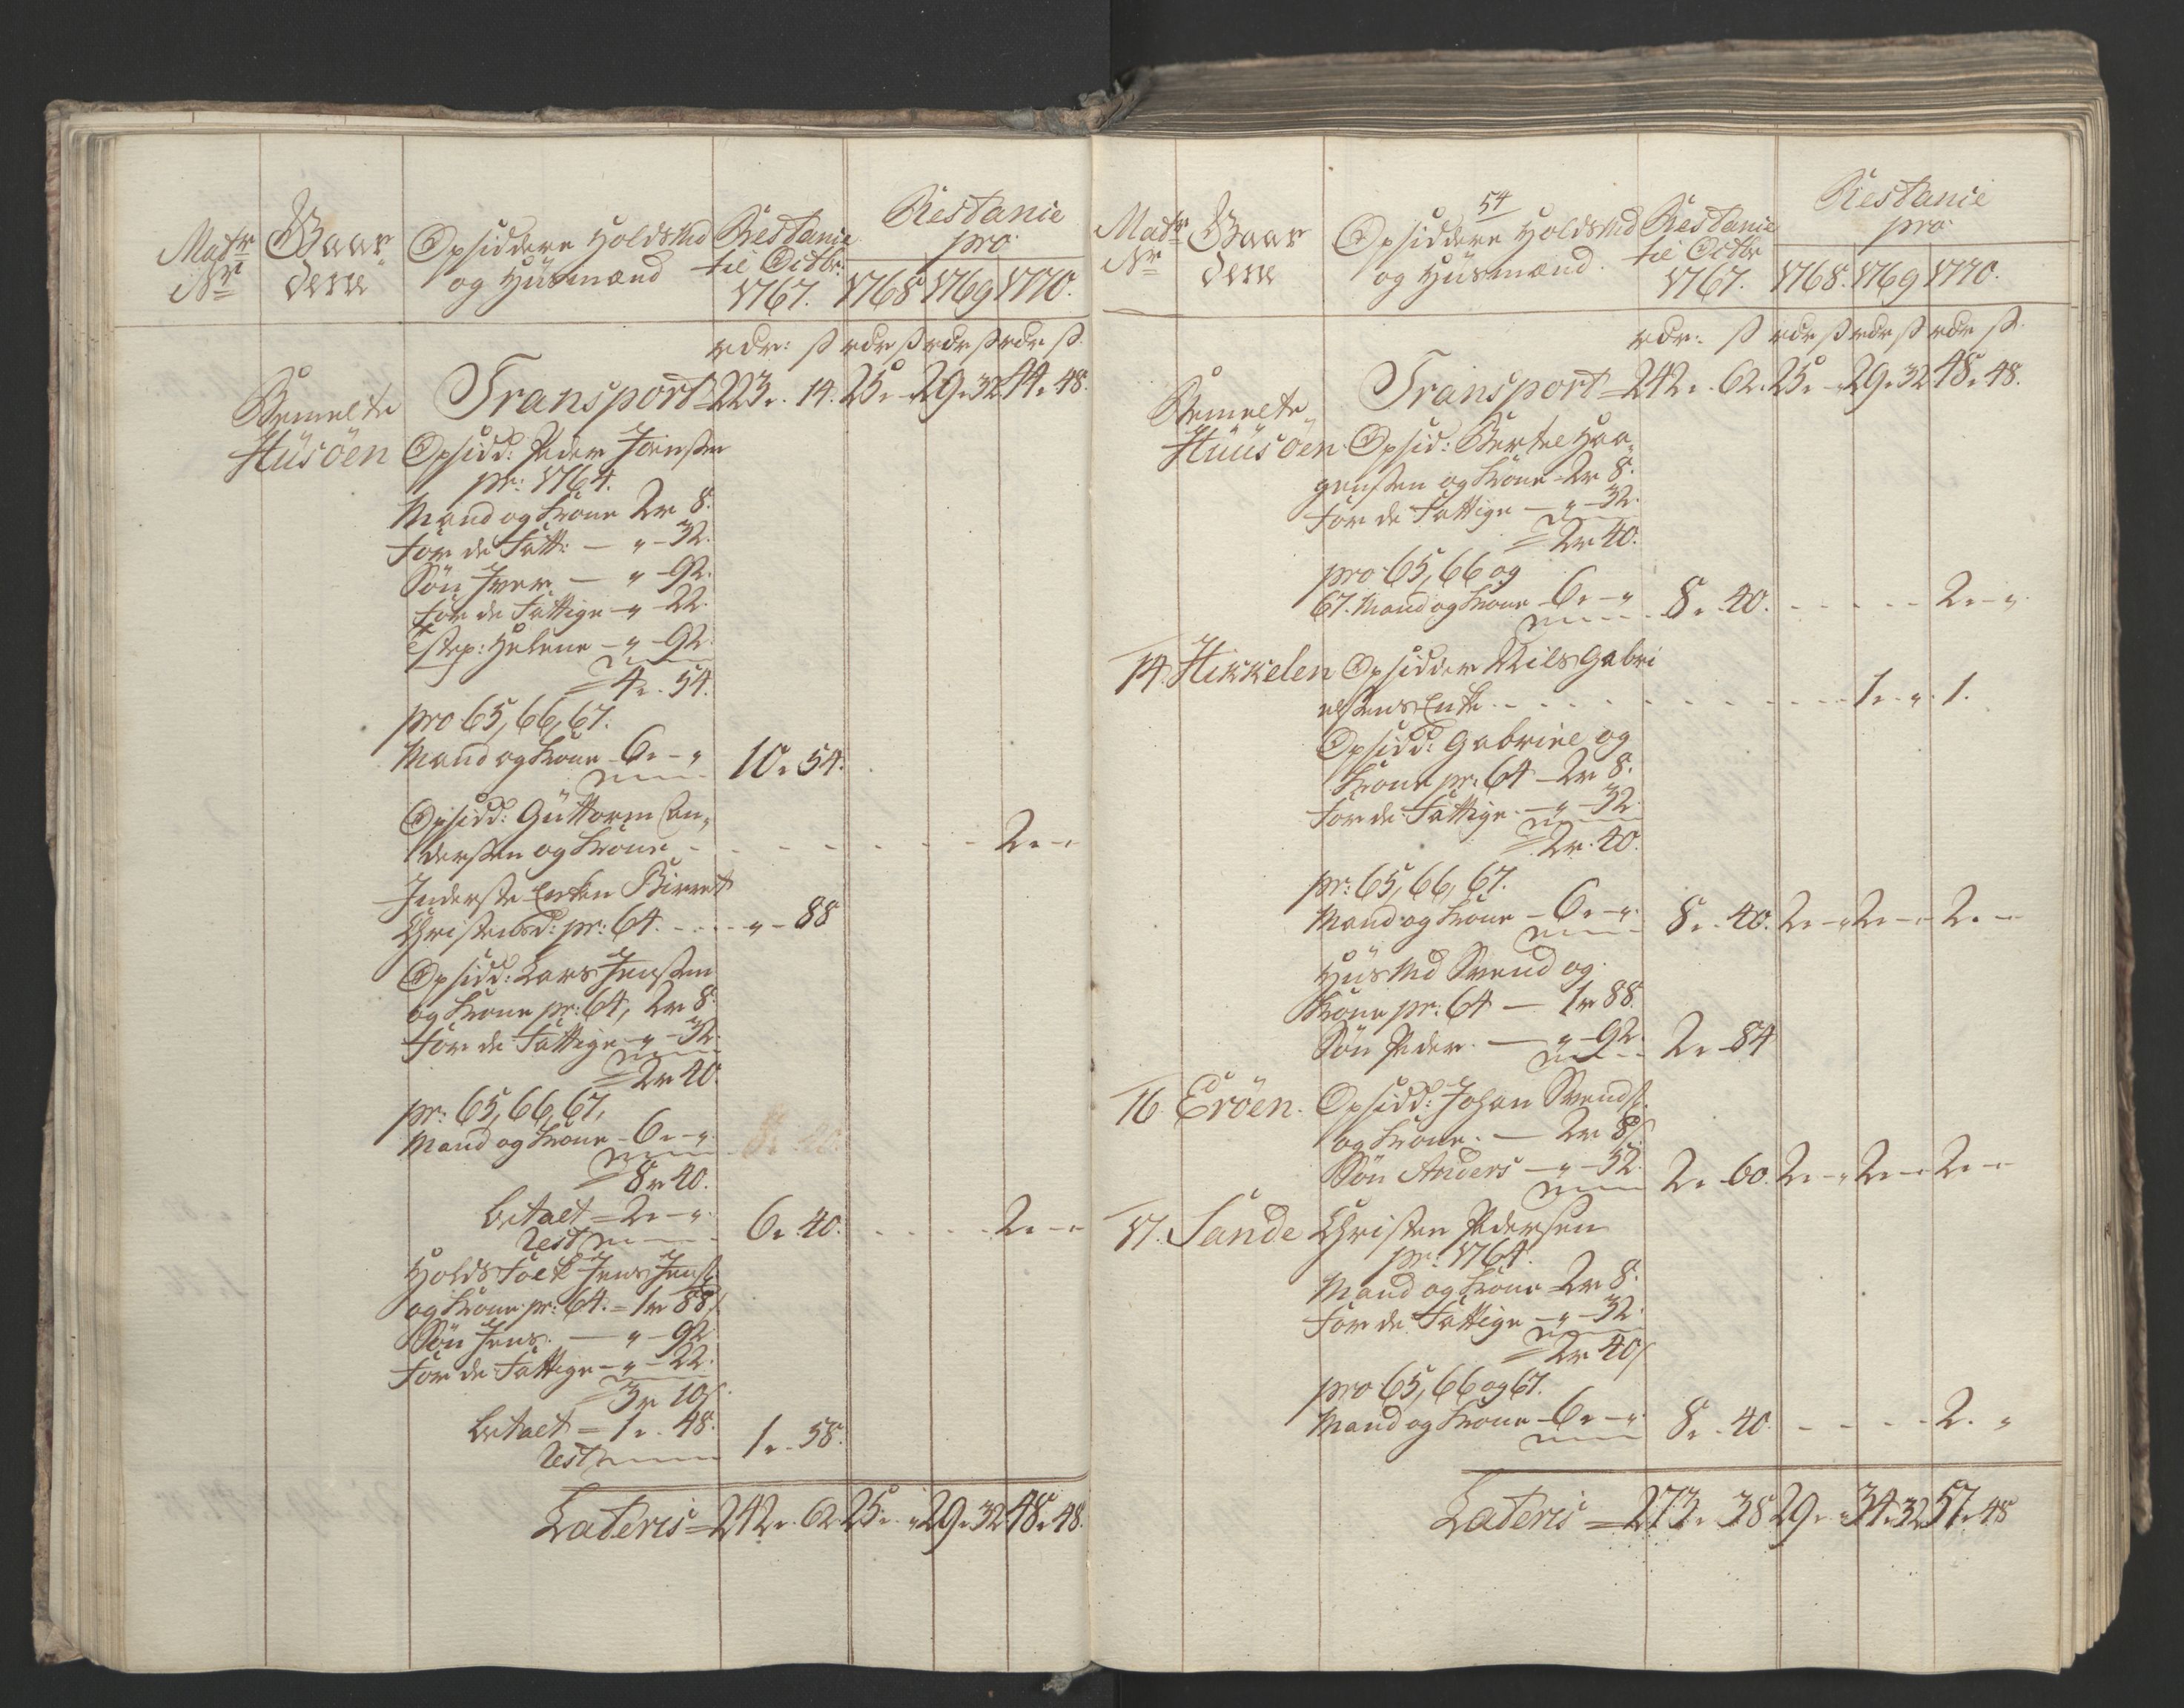 Matr Nr
Gaardene
Opsiddere Holds Md
og Hüsmænd
Restance
til Octbr:
1767.
Restancie
pro
1768 1769 1770.
rdr: ß rdr ß rdr ß rdr ß.
Transport = 223 . 14. 25 . " 29 . 32 44 . 48.
Bemelte
Hüsöen
Opsidd: Peder Joensen
pr: 1764.
Mand og Kone 2r 8.
for de Fatt: — " - 32.
Søn Iver — " - 92.
for de Fattige - " - 22.
Step: Helene - " - 92.
= 4 . 54.
pro 65, 66, 67.
Mand og Kone - 6 . - " 10 . 54.
Opsidd: Güttorm An-
dersen og Kone - - - - - - - 2 . - "
Inderste Enken Birret
Christensd: pr: 64. - - - " - 88
Opsidd: Lars Jensen
og Kone pr: 64, 2r 8.
for de Fattige - " - 32.
= 2r 40.
pr: 65, 66, 67,
Mand og Kone - 6 . - " 8 . 40.
= 8r 40.
betalt = 2 . - "
Rest 6 . 40. - - - - 2 . - "
Holds Folk Jens Jens:
og Kone pr: 64. = 1r 88
Søn Jens. — " - 92.
for de Fattige - " - 22.
= 3r 10
betalt = 1 . 48.
Rest 1 . 58.
Lateris = 242 . 62 25 . " 29 . 32 48 . 48.
54
Matr Nr
Gaardene
Opsiddere Holds Md
og Hüsmænd.
Restance
til Octbr
1767.
Restancie
pro
1768. 1769 1770.
rdr: ß rdr ß rdr ß rdr ß.
Transport = 242 . 62. 25 . - 29 . 32 48 . 48.
Bemelte
Hüüsöen
Opsid: Bertel Haa-
gensen og Kone - 2r 8.
for de Fattige — " - 32.
= 2r 40.
pro 65, 66 og
67. Mand og Kone - 6 . - " 8 . 40. - - - - - 2 . - "
14. Hikkelen Opsidder Nils Gabri
elsens Enke - - - - - - - - - 1 . " 1.
Opsidd: Gabriel og
Kone pr: 64 - 2r 8.
for de Fattige - " - 32.
= 2r. 40.
pr: 65, 66, 67.
Mand og Kone - 6 . - " 8 . 40. 2 . - " 2 . - " 2 . - "
Hüs Md Svend og
Kone pr: 64 — 1r 88.
Søn Peder. — " - 92. 2 . 84
16. Eröen. Opsidd: Johan Svends.
og Kone. — 2r 8.
Søn Anders - " - 52. 2 . 60. 2 . - " 2 . - " 2 . - "
17. Sande Christen Pedersen
pr: 1764.
Mand og Kone = 2r 8.
for de Fattige - " - 32.
= 2r 40
pro 65, 66 og 67.
Mand og Kone - 6 . - " 8 . 40. - - - - 2 . "
Lateris = 273 . 38 29 . " 34 . 32 57 . 48